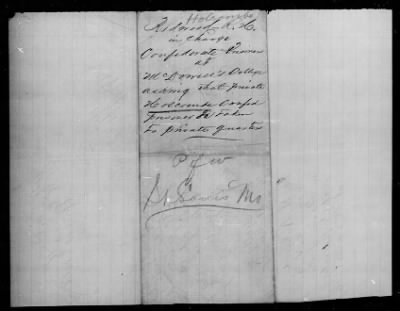 Holcombe
in charge
Confederate Prisoners
at
McDowell's College
asking that private
Holcombe Confed
Prisoner be taken
to private quarters
P of W
St Louis Mo